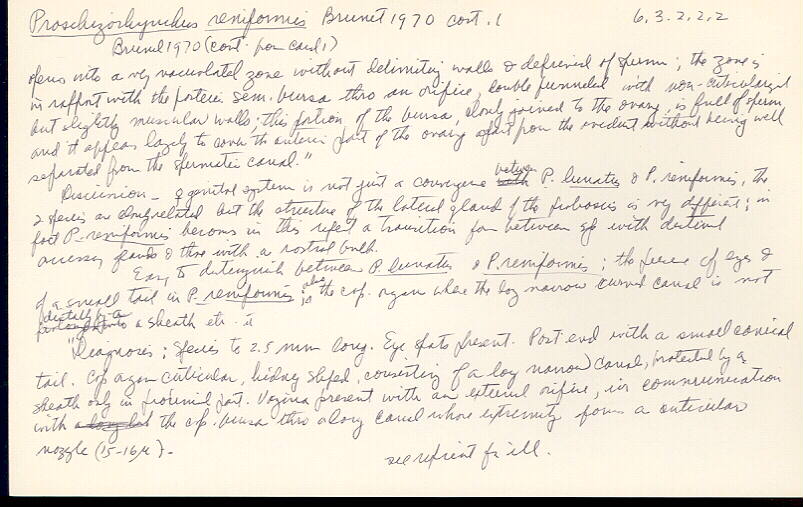 Proschizorhynchus reniformis Brunet 1970 cont. 1 6.3.2.2.2
Brunet 1970 (cont. from card 1)
opens into a very vacuolated zone without delimiting walls & deprived of sperm; the zone is
in rapport with the poster. sem. bursa thro an orifice, double funneled with non-cuticularized
but slightly muscular walls; this portion of the bursa, closely joined to the ovary, is full of sperm
and it appears largely to cover the anterior part of the ovary apart from the oviduct without being well
separated from the spermatic canal."
Discussion - ♀ genital system is not just a convergence between P. lunatus & P. reniformis, the
2 species are closely related but the structure of the lateral gland of the proboscis is very different; in
fact P. reniformis becomes in this respect a transition form between spp with distinct
accessory glands & those with a rostral bulb.
Easy to distinguish between P. lunatus & P. reniformis; the presence of eyes &
of a small tail in P. reniformis; also is the cop. organ where the long narrow curved canal is not
distally by a sheath etc.
"Diagnosis: Species to 2.5 mm long. Eye spots present. Post. end with a small conical
tail. Cop organ cuticular, kidney shaped, consisting of a long narrow canal, protected by a
sheath only in proximal part. Vagina present with an external orifice, in communication
with the cop. bursa thro a long canal whose extremity forms a cuticular
nozzle (15-16μ).-
see reprint for ill.